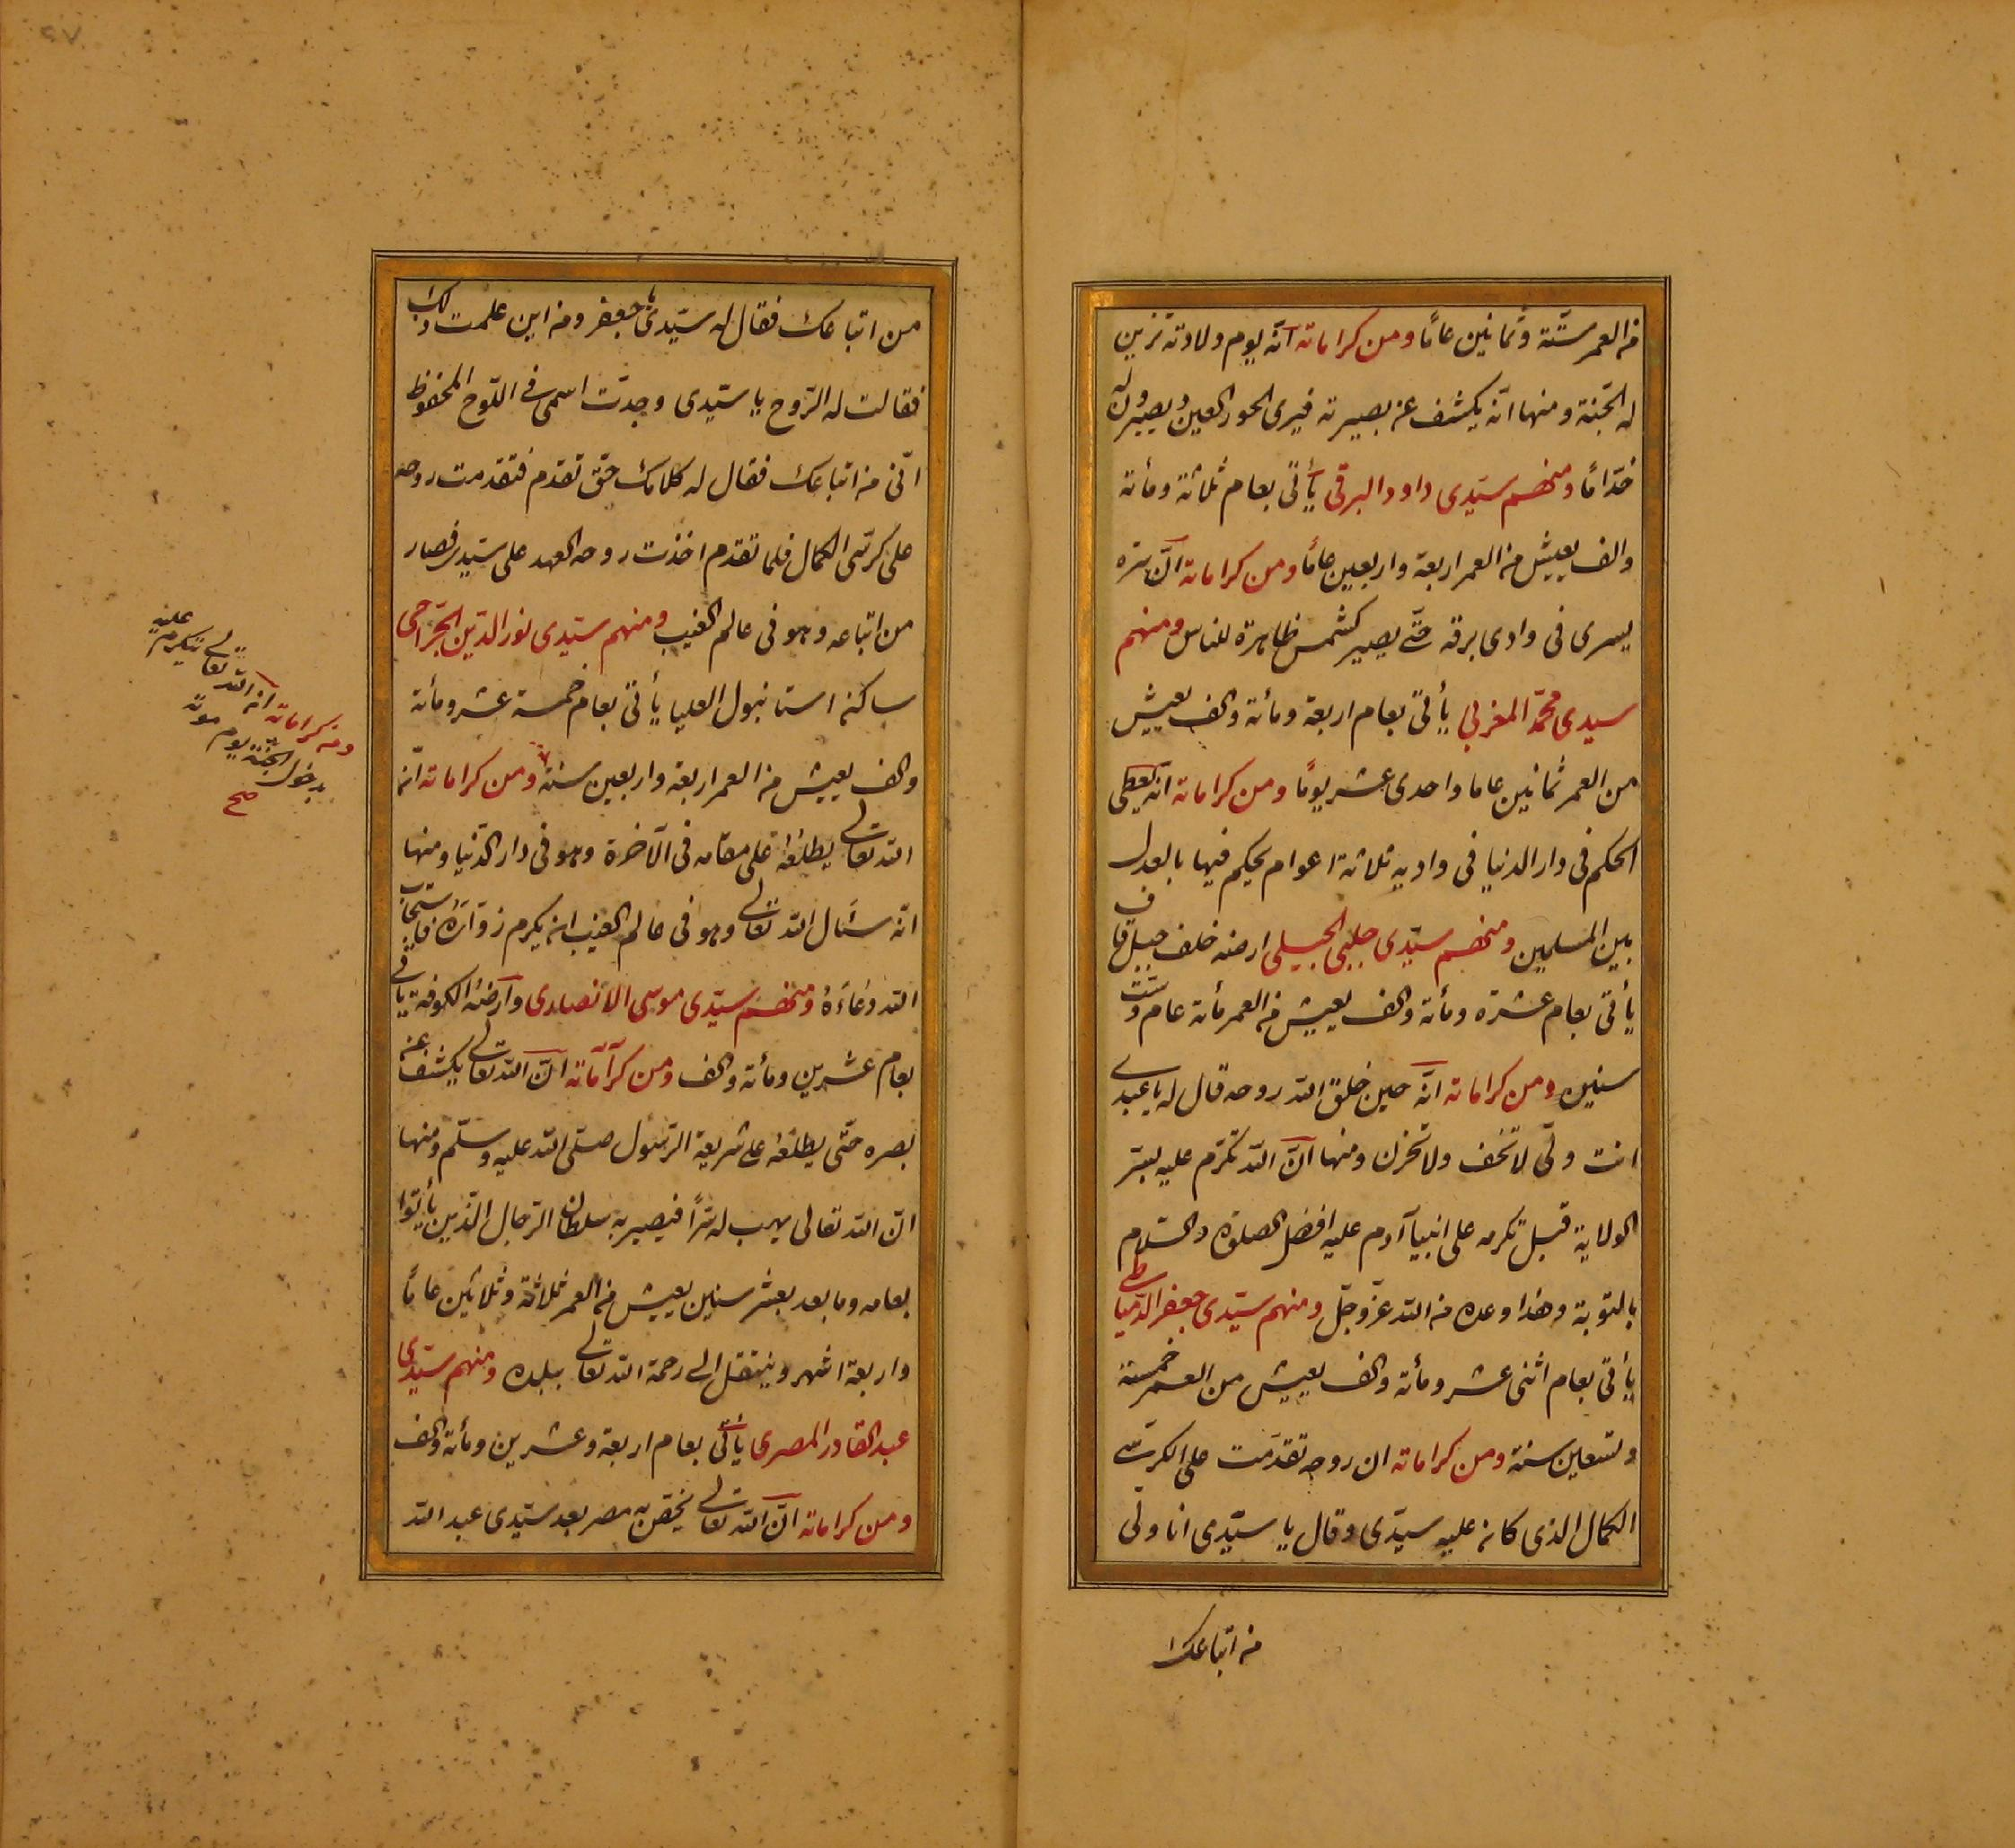 من العمر ستّة وثمانين عامًا ومن كراماته انّه يوم ولادته تزين
له الجنّة ومنها انّه يكشف عن بصيرته فيرى الحور العين ويصيرون له
خدّامًا ومنهم سيّدى داود البرقى يأتى بعام ثلاثة ومأته
والف يعيش من العمر اربعة واربعين عامًا ومن كراماته انّ سرّه
يسرى فى وادى برقه حتّى يصير كشمس ظاهرة للناس ومنهم
سيدى محمّد المغربى يأتى بعام اربعة ومأته والف يعيش
من العمر ثمانين عاما واحدى عشر يومًا ومن كراماته انّه يعطى
الحكم فى دار الدنيا فى واديه ثلاثة اعوام يحكم فيها بالعدل
بين المسلمين ومنهم سيّدى جلبى الجبيلى ارضه خلف جبل قاف
يأتى بعام عشرة ومأته والف يعيش من العمر مأته عام وستّ
سنين ومن كراماته انّه حين خلق الله روحه قال له يا عبدى
انت ولّى لا تخف ولا تحزن ومنها انّ الله تكرّم عليه بسرّ
الولاية قبل تكرمه على انبيا آدم عليه افضل الصلوة والسّلام
بالتوبة وهذا وعده من الله عزّ وجلّ ومنهم سيّدى جعفر الدّمياطى
يأتى بعام اثنى عشر ومأته والف يعيش من العمر خمسة
وتسعين سنة ومن كراماته ان روحه تقدّمت على الكرسى
الكمال الذى كان عليه سيدّى وقال يا سيّدى انا ولّى
من اتباعك
من اتباعك فقال له سيّدى يا جعفر ومن اين علمت ذلك
فقالت له الرّوح يا سيّدى وجدّت اسمى فى اللّوح المحفوظ
انّى من اتباعك فقال له كلامك حقّ تقدم فتقدمت روحه
على كرسّى الكمال فلما تقدم اخذت روحه العهد على سيّدى فصار
من اتّباعه وهو فى عالم الغيب ومنهم سيّدى نور الدّين الجّراحى
ساكن استانبول العليا يأتى بعام خمسة عشر ومأته
والف يعيش من العمر اربعة واربعين سنة ومن كراماته انّ
الله تعالى يطلعهُ على مقامه فى الآخرة وهو فى دار الدّنيا ومنها
انّه سئال الله تعالى وهو فى عالم الغيب ان يكرم زوّاره فاستجاب
الله دعاءَهُ ومنهم سيّدى موسى الانصارى وارضهُ الكوفة يأتى
بعام عشرين ومأته والف ومن كراماته انّ الله تعالى يكشف عن
بصره حتّى يطلعهُ على شريعة الرّسول صلّى الله عليه وسلّم ومنها
انّ الله تعالى يهب له سرّاً فيصير به سلطان الرّجال الّذين يأتوا
بعامه وما بعد بعشر سنين يعيش من العمر ثلاثة وثلاثين عامًا
واربعة اشهر وينتقل الى رحمة الله تعالى ببلده ومنهم سيّدى
عبد القادر المصرى يأتى بعام اربعة وعشرين ومأته والف
ومن كراماته انّ الله تعالى يخصّ به مصر بعد سيّدى عبد الله
ومن كراماته ان الله تعالى يتكرم عليه
بدخول الجنّة يوم موته
صح
٢٧